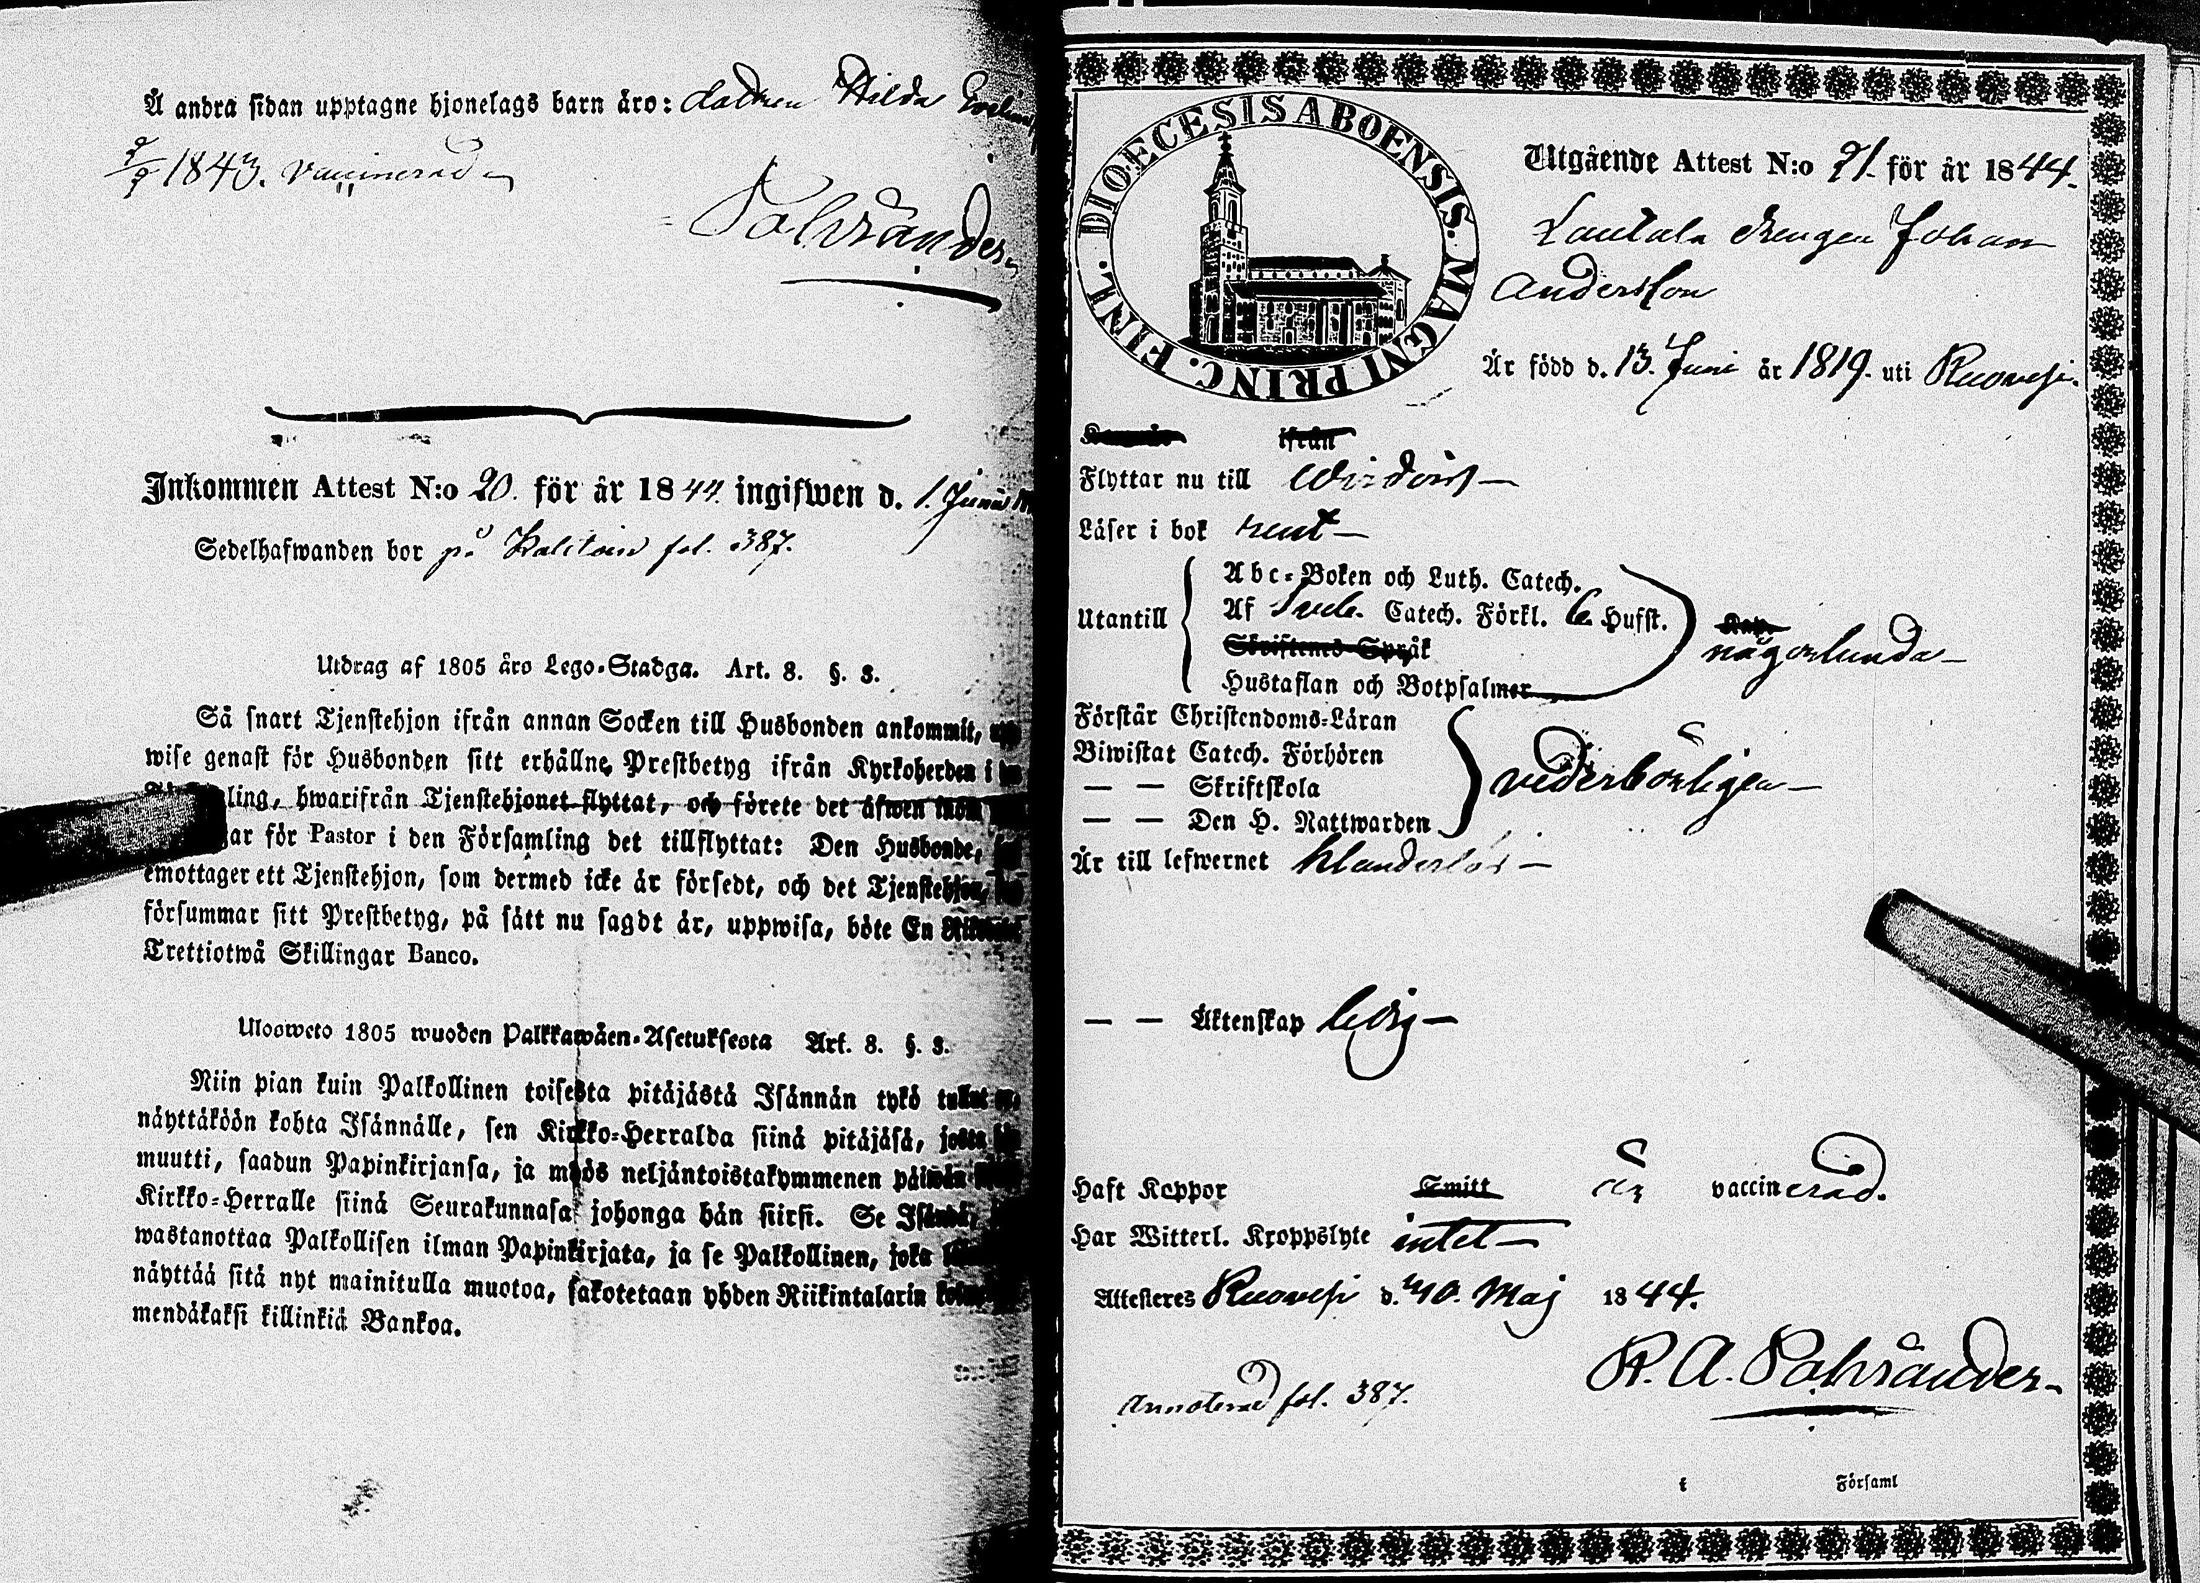 Å andra sidan upptagne hjonelags barn äro: dottren Hilda
1843. vaccinerad
Polviander
Inkommen Attest N:o 20. för år 1844. ingifwen d. 1. Junii
Sedelhafwanden bor på fol. 387.
Utdrag af 1805 års Lego-Stadga. Art. 8. §. 3.
Så snart Tjenstehjon ifrån annan Socken till Husbonden ankommit,
wise genast för Husbonden sitt erhållne Prestbetyg ifrån Kyrkoherden i
ling, hwarifrån Tjenstehjonet flyttat, och förete det äfwen inom
gar för Pastor i den Församling det tillflyttat: Den Husbonde,
emottager ett Tjenstehjon, som dermed icke är försedt, och det Tjenstehjon,
försummar sitt Prestbetyg, på sätt nu sagdt är, uppwisa, böte En Riksdaler
Trettiotwå Skillingar Banco.
Ulosweto 1805 wuoden Palkkawäen-Asetuksesta Art. 8. §. 3.
Niin pian kuin Palkollinen toisesta pitäjästä Isännän tykö tullut
näyttäköön kohta Isännälle, sen Kirkko-Herralda siinä pitäjäsä, josta
muutti, saadun Papinkirjansa, ja myös neljäntoistakymmenen päiwän
Kirkko-Herralle siinä Seurakunnasa johonga hän siirsi. Se Isändä,
wastanottaa Palkollisen ilman Papinkirjata, ja se Palkollinen, joka
näyttää sitä nyt mainitulla muotoa, sakotetaan yhden Riikintalarin
mendäkaksi killinkiä Bankoa.
DIOECESIS ABOENSIS. MAGNI PRINC. FINL.
Utgående Attest N:o 21. för år 1844.
Lautala drengen Johan
Andersson
Är född d. 13. Juni år 1819. uti Ruovesi.
ifrån
Flyttar nu till Wirdois
Läser i bok rent
Utantill
Abc-Boken och Luth. Catech.
Af Sveb. Catech. Förkl. 6 Hufst.
Skriftenes Språk
Hustaflan och Botpsalmer
någorlunda
Förstår Christendoms-Läran
Biwistat Catech. Förhören
— — Skriftskola
— — Den H. Nattwarden
vederbörligen
Är till lefwernet klanderlös
— — Äktenskap ledig
Haft Koppor Smitt är vaccinerad.
Har Witterl. Kroppslyte intet
Attesteres Ruovesi d. Maj 1844.
R. A. Polviander
Annoterad fol. 387.
i Församl